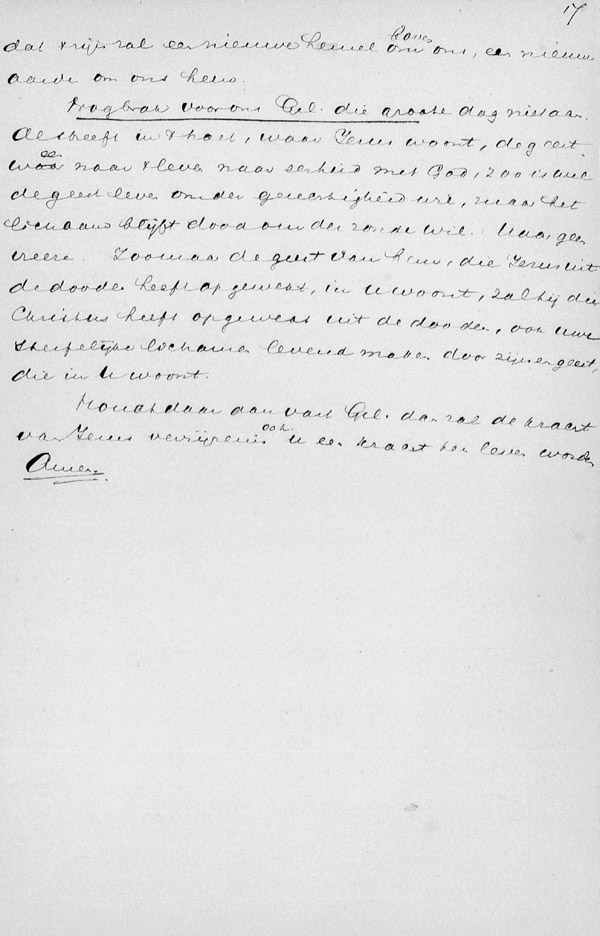 17
dat rijk zal een nieuwe hemel boven ons, een nieuwe
aarde om ons heen.
brak voor ons Gel. die groote dag niet aan.
De heeft in 't hart, waar Jezus woont, de geest
een naar 't leven naar eenheid met God, zoo is uw
de geest leven om der gerechtigheid wil, maar het
lichaam blijft dood om der zonde wil. Maar geen
vreeze. Zoomaar de geest van hem, die Jezus uit
de dooden heeft opgewekt, in U woont, zal hij die
Christus heeft opgewekt uit de dooden, ook uwe
sterfelijke lichamen levend maken door zijnen geest,
die in U woont.
Houdt daar aan vast Gel. dan zal de kracht
van Jezus verrijzenis ook U een kracht ten leven worden
Amen.